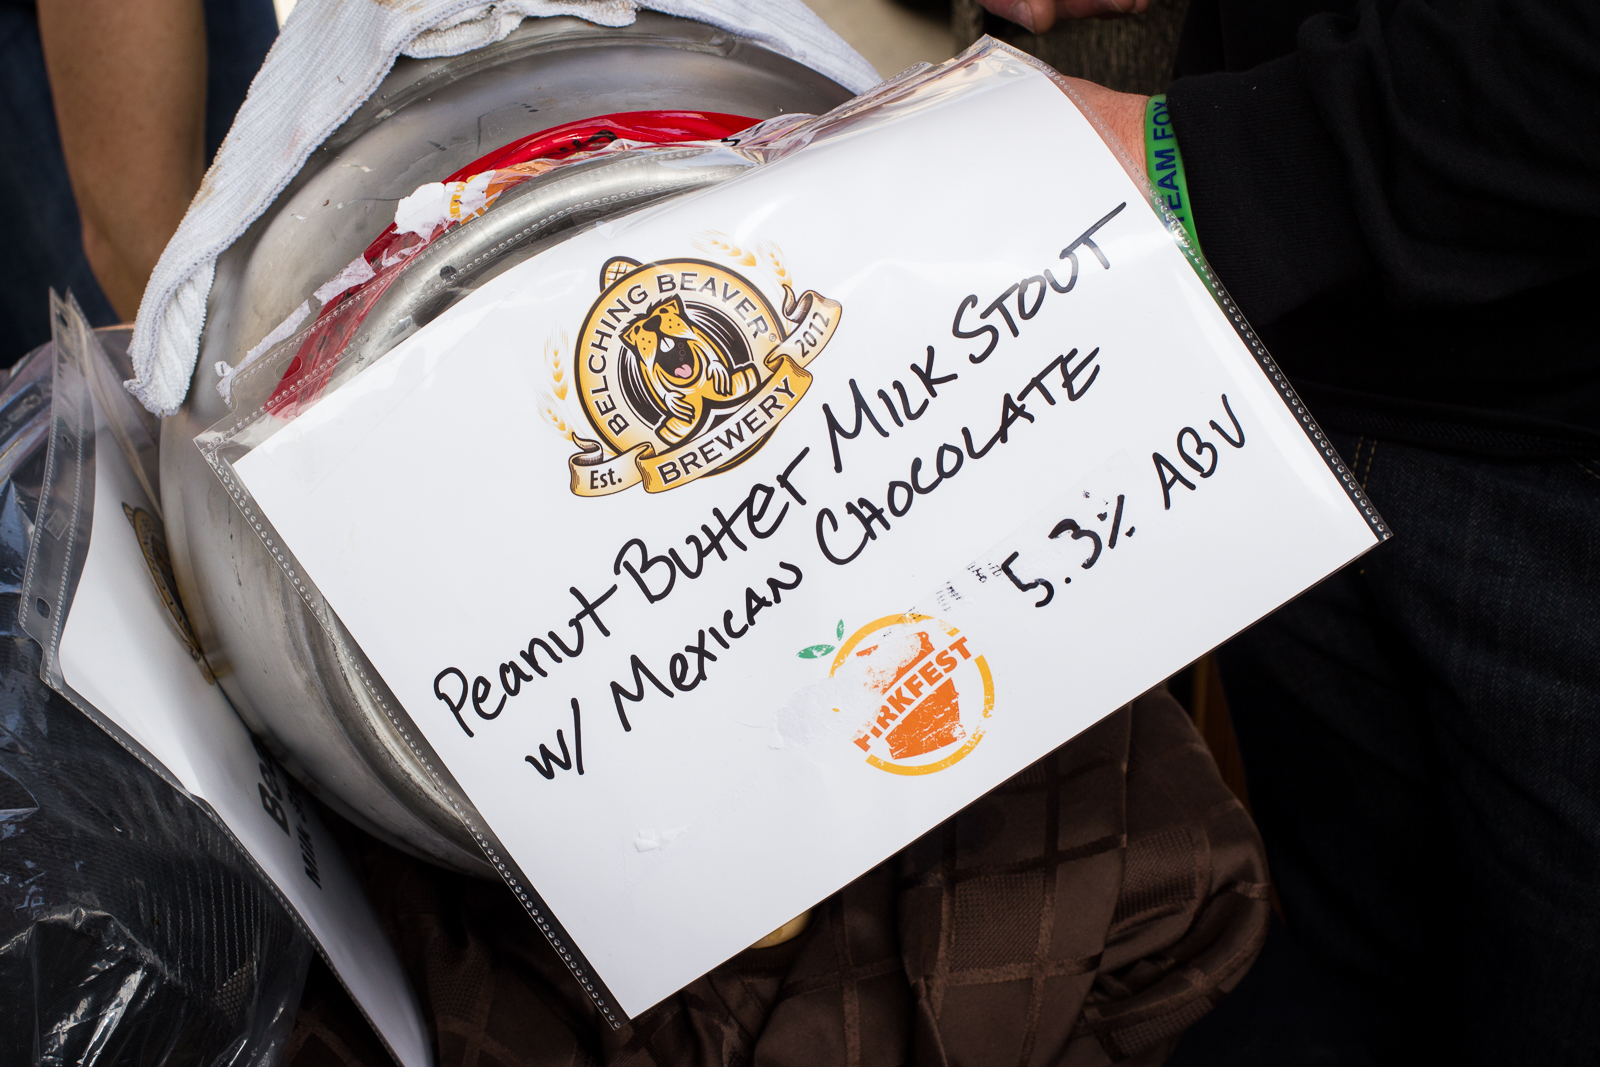 BELCHING BEAVER
BREWERY
Est. 2012
Peanut Butter Milk Stout
w/ Mexican Chocolate
5.3% ABV
FIRKFEST
TEAM FOX